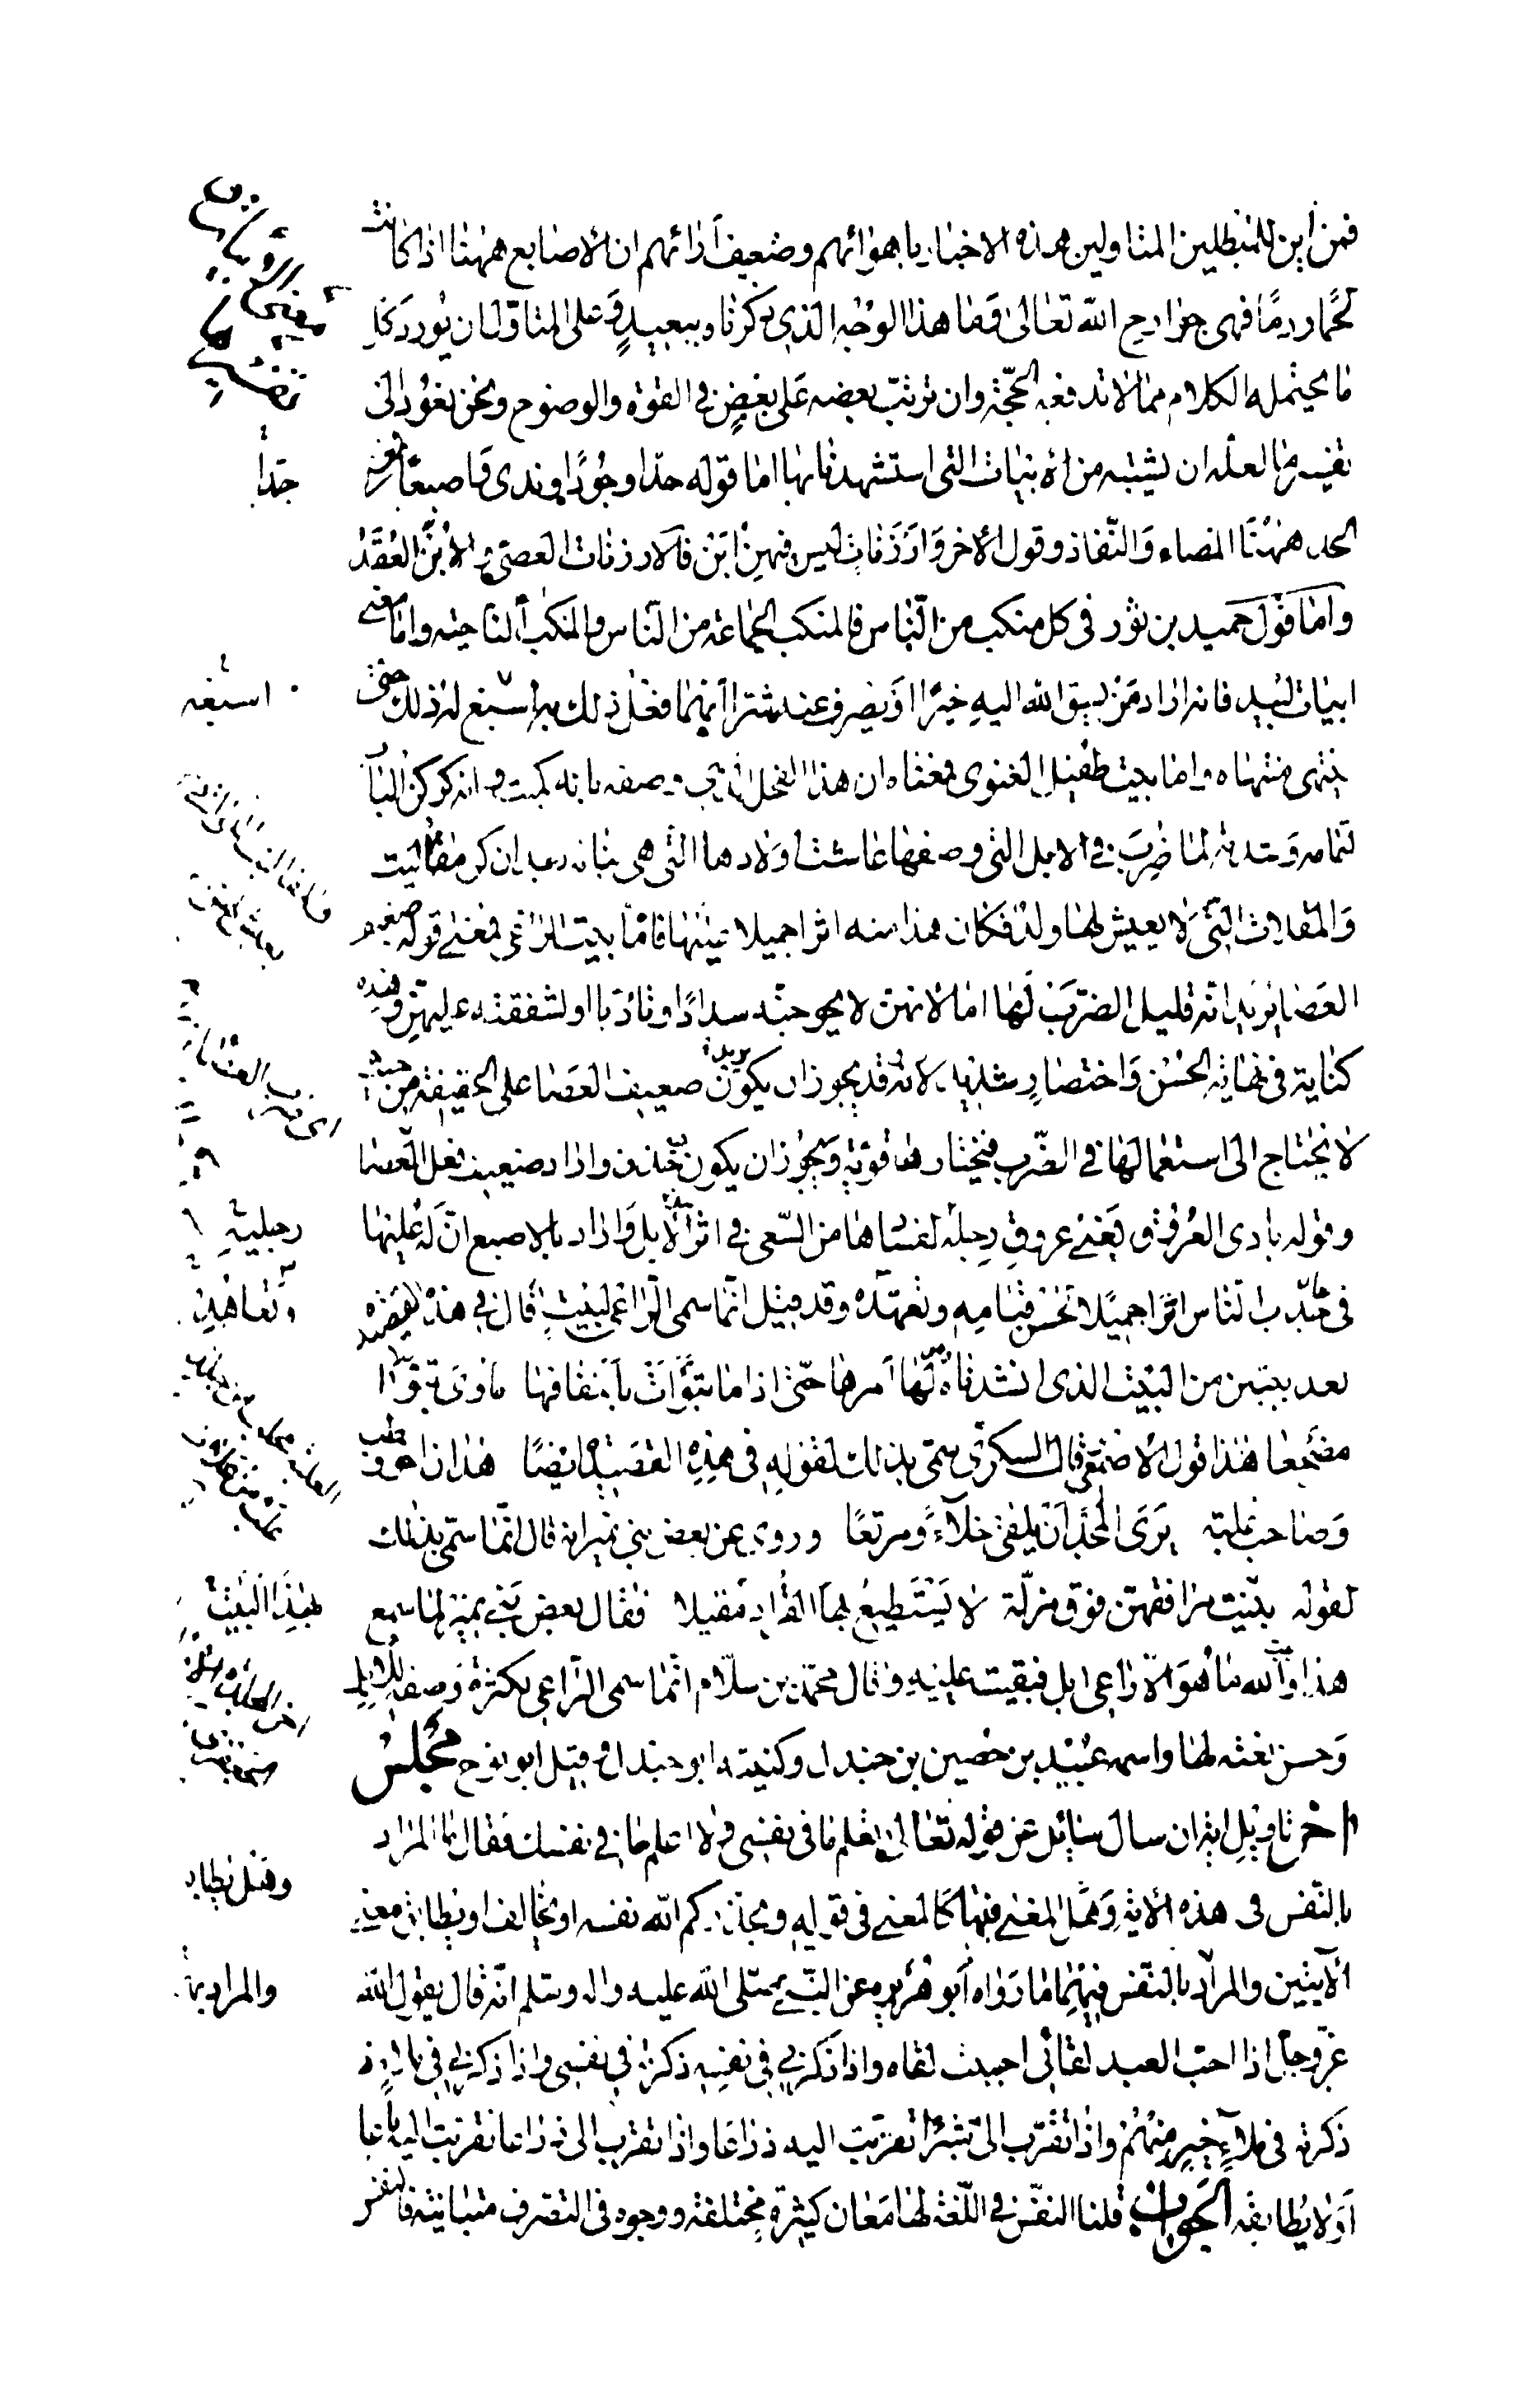 فمن اين للمبطلين المتاولين هذه الاخبار باهوائهم وضعيف آرائهم ان الاصابع ههنا اذا كانت
لحمًا ودمًا فهى جوارح الله تعالى وما هذا الوجه الذى ذكرناه ببعيد وعلى المتاول ان يورد كل
ما يحتمله الكلام مما لا تدفعه الحجّة وان ترتب بعضه على بعضٍ فى القوة والوضوح ونحن نعود الى
تفسير ما لعله ان يشتبه من الابيات التى استشهدنا بها اما قوله حدا وجودًا وندى واصبعًا فمعنى
الحد ههنا المضاء والنّفاذ وقول الاخر وارزنات ليس فيهن ابن فالارزنات العصىّ والابن العقد
واما قول حميد بن ثور فى كل منكب من النّاس فالمنكب الجماعة من الناس والمنكب الناحية واما معنى
ابيات لبيد فانه اراد من يسق الله اليه خيرًا او يصرف عنه شرا انما فعل ذلك به واسبغ له ذلك حتى
ينتهى منتهاه واما بيت طفيل الغنوى فمعناه ان هذا الفحل الذى وصفه بانه كميت وانه كركن الباب
لتمامه وشدته لما ضرب فى الابل التى وصفها عاشت اولادها التى هى بناته بعد ان كن مقاليت
والمقلات التى لا يعيش لها ولد فكان هذا منه اثرا جميلا عليها فاما بيت الراعى فمعنى قوله ضعيف
العصا يريد انه قليل الضرب لها اما لانهن لا يحوجنه سدادًا وتادبا او لشفقته عليهن وهذه
كناية فى نهاية الحسن واختصار شديد لانه قد يجوز ان يكون يريد ضعيف العصا على الحقيقة من حيث
لا يحتاج الى استعمالها فى الضرب فيختارها قوية ويجوز ان يكون حذف واراد ضعيف فعل العصا
وقوله بادى العروق يعنى عروق رجله لفسادها من السّعى فى اثر الابل واراد بالاصبع انّ له عليها
فى جدب الناس اثرا جميلا لحسن قيامه وتعهّده وقد قيل انّما سمى الرّاعى لبيت قال فى هذه القصيدة
بعد بيتين من البيت الذى انشدناه لها امرها حتى اذا ما تبوّأت باخفافها ماوى تبوّأ
مضجعا هذا قول الاصمعى وقال السكرى سمّى بذلك لقوله فى هذه القصيدة ايضًا هدان اخو وطب
وصاحب علبة يرى المجد ان يلقى خلاءً ومرتعًا وروى عن بعض بنى نمير انه قال انّما سمّى بذلك
لقوله بنيت مرافقهنّ فوق مزلّة لا يستطيع بها القراد مقيلا فقال بعض بنى نمير لما سمع
هذا والله ما هو الّا راعى ابل فبقيت عليه وقال محمّد بن سلّام انّما سمى الرّاعى لكثرة وصفه للابل
وحسن نعته لها واسمه عبيد بن حصين بن جندل وكنيته ابو جندل وقيل ابو نوح مجلس
اخر تاويل اية ان سال سائل عن قوله تعالى تعلم ما فى نفسى ولا اعلم ما فى نفسك فقال ما المراد
بالنّفس فى هذه الاية وهل المعنى فيها كالمعنى فى قوله ويحذركم الله نفسه او يخالف او يطابق معنى
الايتين والمراد بالنّفس فيهما ما رواه ابو هريرة عن النبى صلى الله عليه واله وسلم انّه قال يقول الله
عزّ وجل اذا احبّ العبد لقائى احببت لقاه واذا ذكرنى فى نفسه ذكرته فى نفسى واذا ذكرنى فى ملاء
ذكرته فى ملاءٍ خير منهم واذا تقرّب الىّ شبرًا تقربت اليه ذراعًا واذا تقرب الى ذراعا تقربت اليه باعا
او لا يطابقه الجواب قلنا النفس فى اللّغة لها معان كثيرة مختلفة ووجوه فى التصرف متباينة فالنفس
جدّا
رجليه
وتعاهده
بهذا البيت
وهل يطابق
والمراد بما